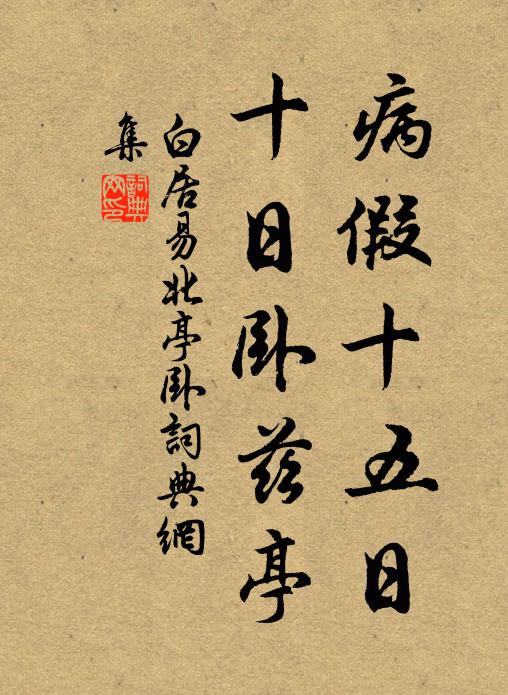 病假十五日
十日卧茲亭
白居易北亭卧詞典網
集
詞典
网印